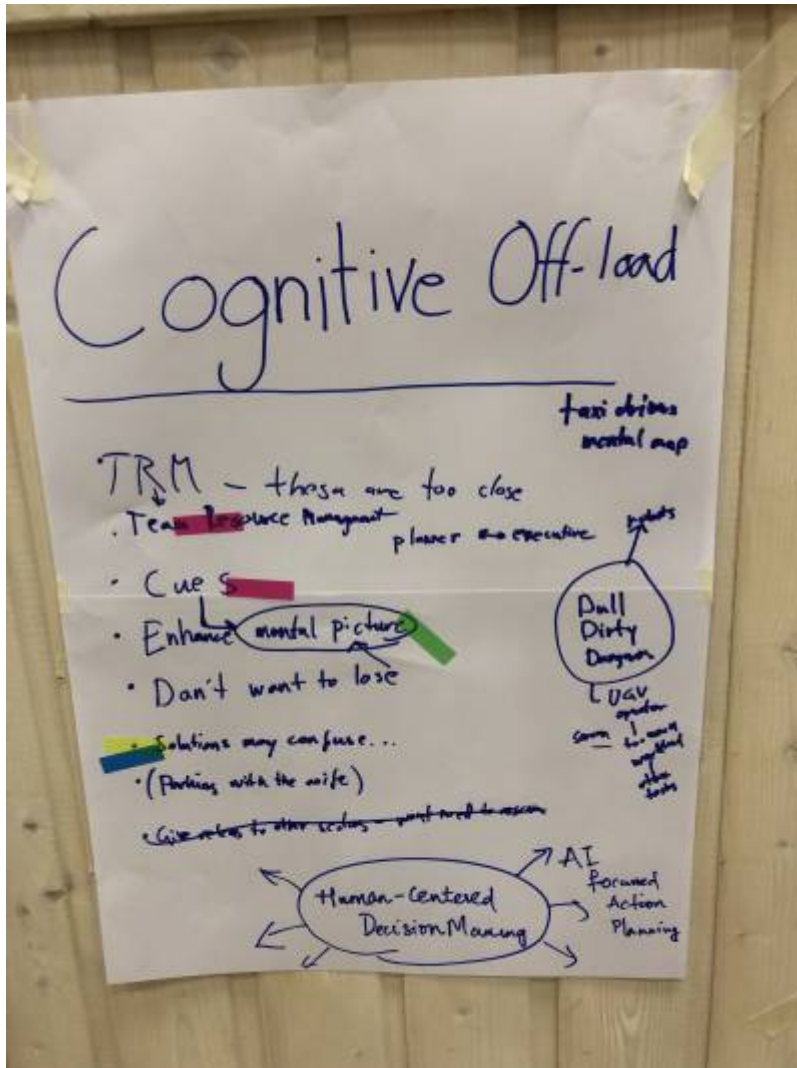 Cognitive Off-load
taxi drivers
mental map
• TRM – these are too close
• Team Resource Managment
planner executive
• Cues
• Enhance mental picture
• Don't want to lose
• Solutions may confuse...
• (Parking with the wife)
• Give to other sectors - want need to
robots
Dull
Dirty
UAV
operator
workload
other
tasks
Human-Centered
Decision Making
AI
focused
Action
Planning